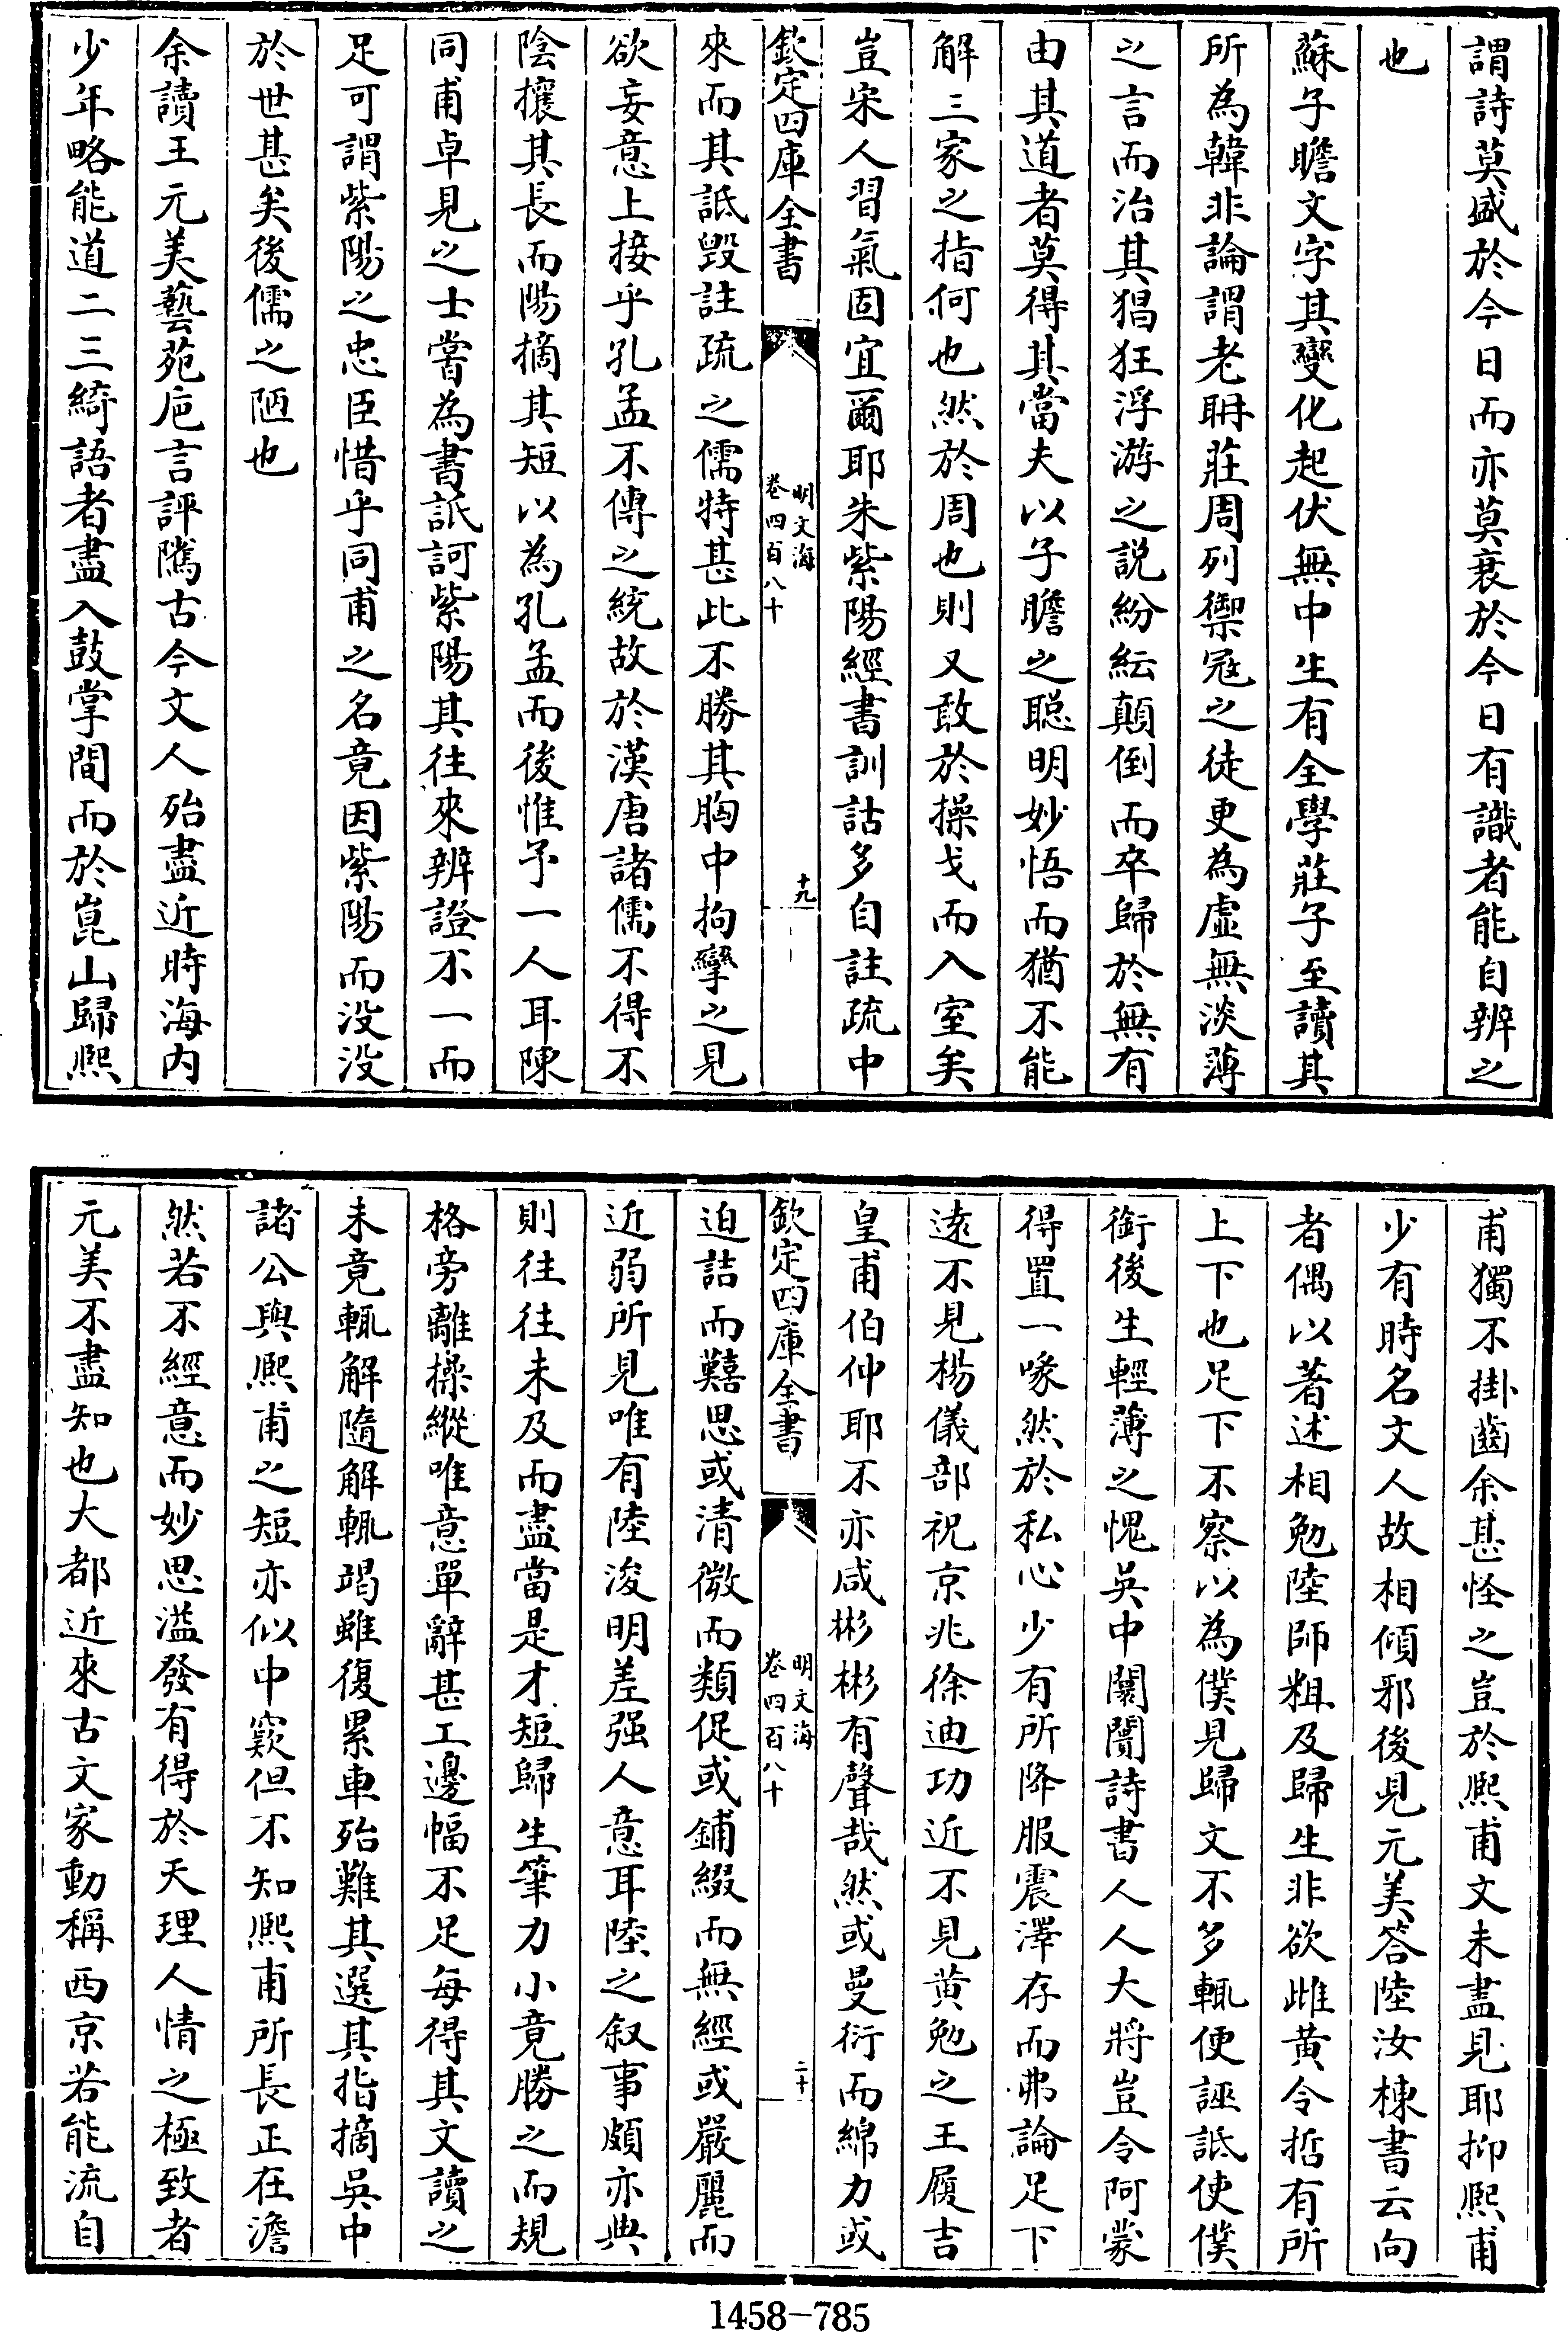 謂詩莫盛於今日而亦莫衰於今日有識者能自辨之
也
蘇子瞻文字其變化起伏無中生有全學莊子至讀其
所為韓非論謂老耼莊周列禦冦之徒更為虛無淡薄
之言而治其猖狂浮游之説紛紜顛倒而卒歸於無有
由其道者莫得其當夫以子瞻之聰明妙悟而猶不能
解三家之指何也然於周也則又敢於操戈而入室矣
豈宋人習氣固宜爾耶朱紫陽經書訓詁多自註疏中
欽定四庫全書
明文海
卷四百八十
十九
來而其詆毀註疏之儒特甚此不勝其胸中拘攣之見
欲妄意上接乎孔孟不傳之統故於漢唐諸儒不得不
陰攘其長而陽摘其短以為孔孟而後惟予一人耳陳
同甫卓見之士嘗為書詆訶紫陽其往來辨證不一而
足可謂紫陽之忠臣惜乎同甫之名竟因紫陽而没没
於世甚矣後儒之陋也
余讀王元美藝苑巵言評隲古今文人殆盡近時海内
少年略能道二三綺語者盡入鼓掌間而於崑山歸熙
甫獨不掛齒余甚怪之豈於熙甫文未盡見耶抑熙甫
少有時名文人故相傾邪後見元美答陸汝棟書云向
者偶以著述相勉陸師粗及歸生非欲雌黄令哲有所
上下也足下不察以為僕見歸文不多輒便誣詆使僕
銜後生輕薄之愧吳中闤闠詩書人人大將豈令阿蒙
得置一喙然於私心少有所降服震澤存而弗論足下
逺不見楊儀部祝京兆徐迪功近不見黄勉之王履吉
皇甫伯仲耶不亦咸彬彬有聲哉然或曼衍而綿力或
欽定四庫全書
明文海
卷四百八十
二十
迫詰而囏思或清微而類促或鋪綴而無經或嚴麗而
近弱所見唯有陸浚明差强人意耳陸之叙事頗亦典
則往往未及而盡當是才短歸生筆力小竟勝之而規
格旁離操縱唯意單辭甚工邊幅不足每得其文讀之
未竟輒解隨解輒竭雖復累車殆難其選其指摘吳中
諸公與熙甫之短亦似中窾但不知熙甫所長正在澹
然若不經意而妙思溢發有得於天理人情之極致者
元美不盡知也大都近來古文家動稱西京若能流自
1458-785